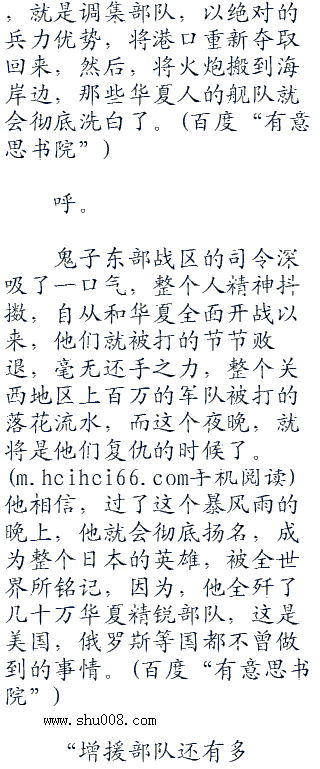 ，就是调集部队，以绝对的
兵力优势，将港口重新夺取
回来，然后，将火炮搬到海
岸边，那些华夏人的舰队就
会彻底洗白了。(百度“有意
思书院”)
呼。
鬼子东部战区的司令深
吸了一口气，整个人精神抖
擞，自从和华夏全面开战以
来，他们就被打的节节败
退，毫无还手之力，整个关
西地区上百万的军队被打的
落花流水，而这个夜晚，就
将是他们复仇的时候了。
(m.hcihci66.com手机阅读)
他相信，过了这个暴风雨的
晚上，他就会彻底扬名，成
为整个日本的英雄，被全世
界所铭记，因为，他全歼了
几十万华夏精锐部队，这是
美国，俄罗斯等国都不曾做
到的事情。(百度“有意思书
院”)
www.shu008.com
“增援部队还有多